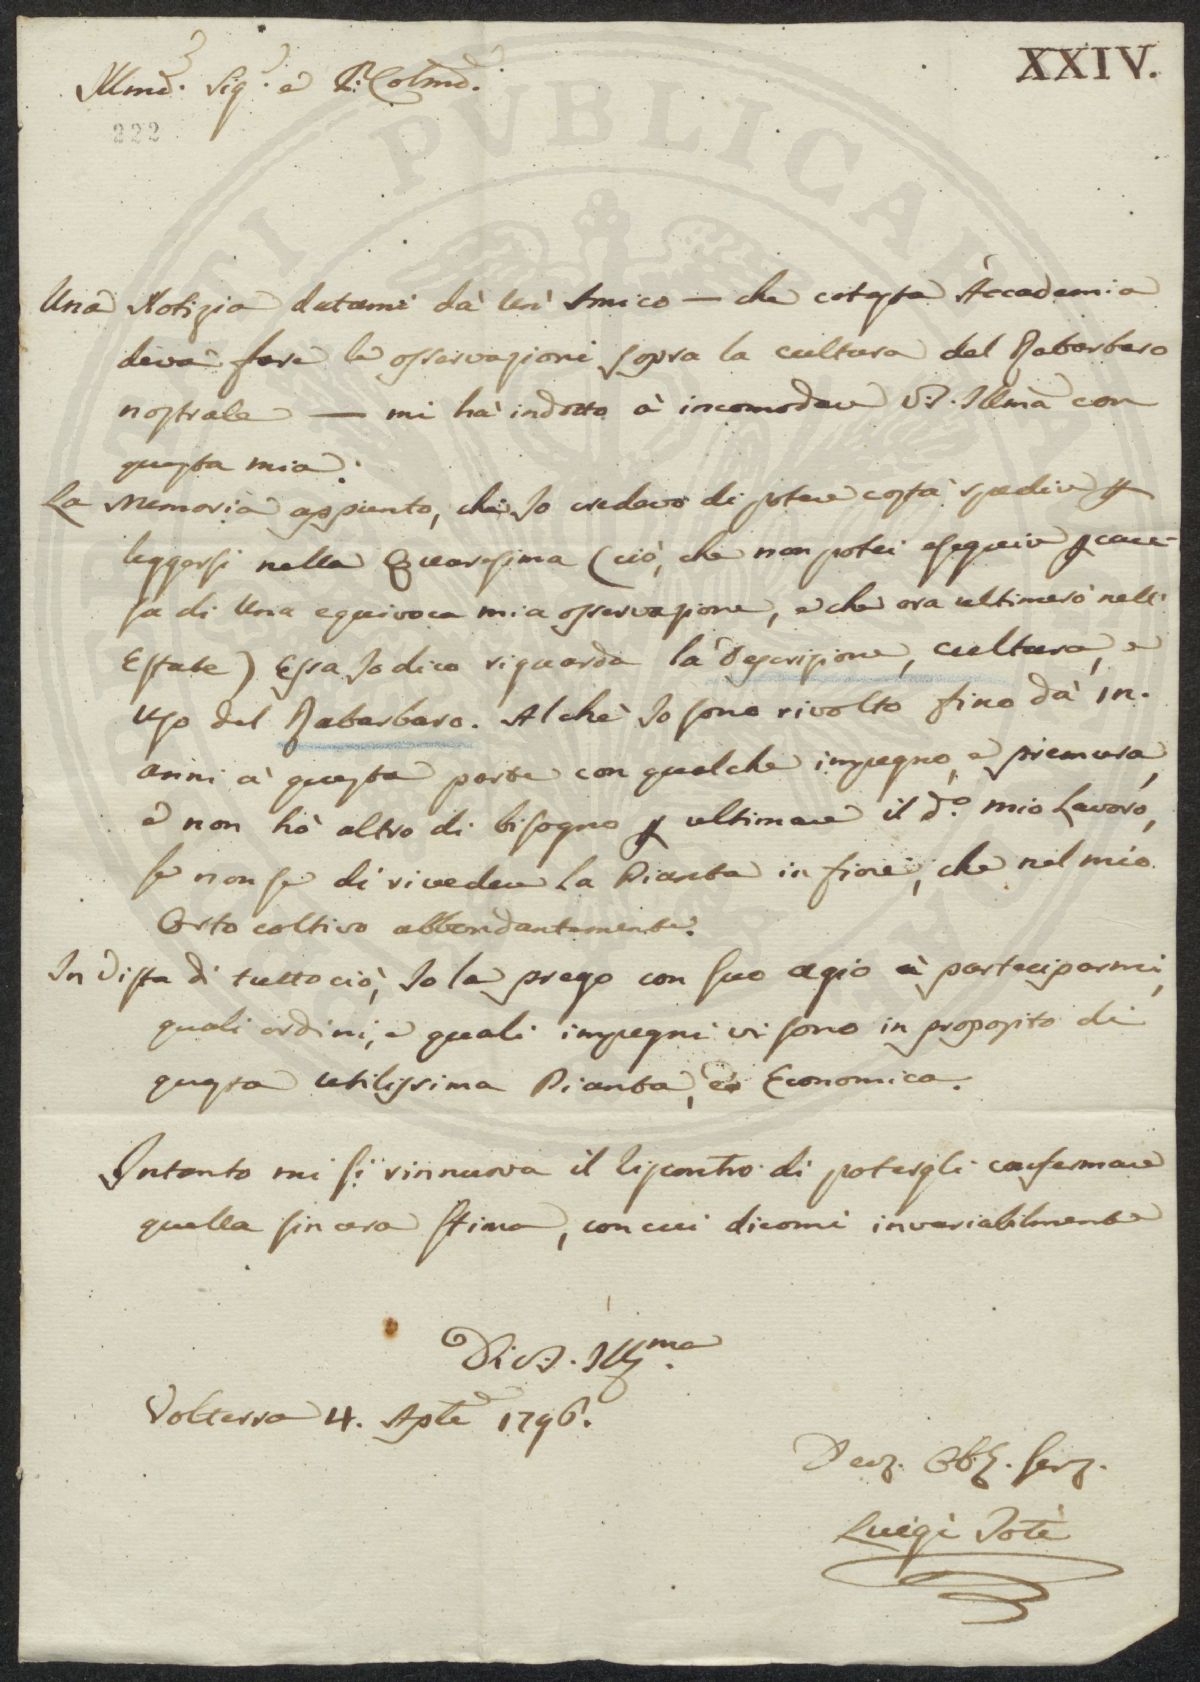 XXIV.
Illmo. Sig.e e P. Colmo.
222
Una Notizia datami dà un' Amico — che cotesta Accademia
deva fare le osservazioni sopra la cultura del Rabarbaro
nostrale — mi hà indotto à incomodare V.S. Illma con
questa mia.
La Memoria appunto, che Io credevo di potere costà spedire p
leggersi nella Quaresima (ciò, che non potei eseguire p cau-
sa di una equivoca mia osservazione, e che ora ultimerò nell'
Estate) Essa Io dico riguarda la descrizione, cultura, e
uso del Rabarbaro. Al che Io sono rivolto fino dà in.
anni à questa parte con qualche impegno, e premura,
e non hò altro di bisogno p ultimare il do. mio Lavoro,
se non se di rivedere la Pianta in fiore, che nel mio
Orto coltivo abbondantemente.
In vista di tutto ciò, Io la prego con suo agio à parteciparmi,
quali ordini, e quali impegni vi sono in proposito di
questa utilissima Pianta, ed Economica.
Intanto mi si rinnuova il riscontro di potergli confermare
quella sincera stima, con cui dicomi invariabilmente
Di V.S. Illma.
Volterra 4. Aple 1796.
Dev. Obb. Serv.
Luigi
PUBLICAE